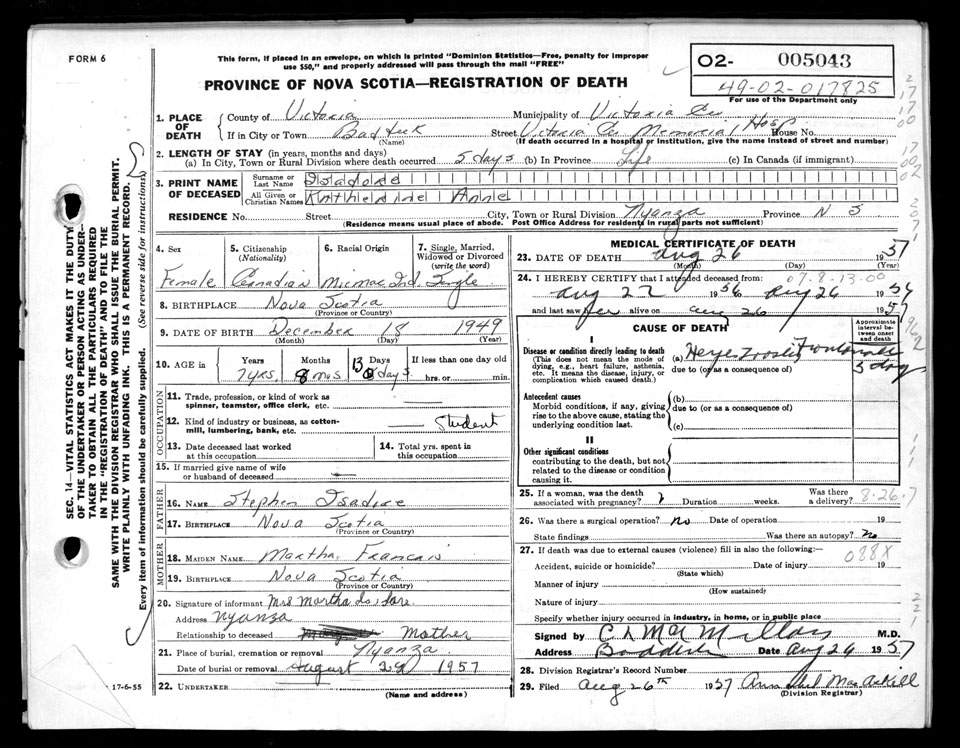 FORM 6
This form, if placed in an envelope, on which is printed "Dominion Statistics—Free, penalty for improper
use $50," and properly addressed will pass through the mail "FREE"
PROVINCE OF NOVA SCOTIA—REGISTRATION OF DEATH
O2- 005043
49-02-017825
For use of the Department only
1. PLACE OF DEATH
County of Victoria Municipality of Victoria Co
If in City or Town Baddeck Street Victoria Co Memorial Hosp House No.
(Name) (If death occurred in a hospital or institution, give the name instead of street and number)
2. LENGTH OF STAY (in years, months and days)
(a) In City, Town or Rural Division where death occurred 5 days (b) In Province Life (c) In Canada (if immigrant)
3. PRINT NAME OF DECEASED
Surname or Last Name Isadore
All Given or Christian Names Katherine Anne
RESIDENCE No. Street City, Town or Rural Division Nyanza Province N S
(Residence means usual place of abode. Post Office Address for residents in rural parts not sufficient)
4. Sex 5. Citizenship (Nationality) 6. Racial Origin 7. Single, Married, Widowed or Divorced (write the word)
Female Canadian Micmac Ind Single
8. BIRTHPLACE Nova Scotia
(Province or Country)
9. DATE OF BIRTH December 18 1949
(Month) (Day) (Year)
10. AGE in Years Months Days If less than one day old
7 yrs. 8 mos days hrs. or min.
OCCUPATION
11. Trade, profession, or kind of work as
spinner, teamster, office clerk, etc. —
12. Kind of industry or business, as cotton-
mill, lumbering, bank, etc. — Student
13. Date deceased last worked
at this occupation
14. Total yrs. spent in
this occupation
15. If married give name of wife
or husband of deceased —
FATHER
16. NAME Stephen Isadore
17. BIRTHPLACE Nova Scotia
(Province or Country)
MOTHER
18. MAIDEN NAME Martha Francis
19. BIRTHPLACE Nova Scotia
(Province or Country)
20. Signature of informant Mrs Martha Isadore
Address Nyanza
Relationship to deceased Mother
21. Place of burial, cremation or removal Nyanza
Date of burial or removal August 1957
22. UNDERTAKER
(Name and address)
17-6-55
MEDICAL CERTIFICATE OF DEATH
23. DATE OF DEATH Aug 26 1957
(Month) (Day) (Year)
24. I HEREBY CERTIFY that I attended deceased from: 07.8-13-00
Aug 22 1956 to Aug 26 19
and last saw her alive on Aug 26 1957
CAUSE OF DEATH
Approximate interval between onset and death
I
Disease or condition directly leading to death
(This does not mean the mode of
dying, e.g., heart failure, asthenia,
etc. It means the disease, injury, or
complication which caused death.)
(a)
due to (or as a consequence of)
3 days
Antecedent causes
Morbid conditions, if any, giving
rise to the above cause, stating the
underlying condition last.
(b)
due to (or as a consequence of)
(c)
II
Other significant conditions
contributing to the death, but not
related to the disease or condition
causing it.
25. If a woman, was the death
associated with pregnancy? Duration weeks. Was there a delivery? 8-26-7
26. Was there a surgical operation? no Date of operation 19
State findings Was there an autopsy? No
27. If death was due to external causes (violence) fill in also the following:—
088X
Accident, suicide or homicide? Date of injury 19
(State which)
Manner of injury
(How sustained)
Nature of injury
Specify whether injury occurred in industry, in home, or in public place
Signed by C L MacMillan M.D.
Address Baddeck Date Aug 26 1957
28. Division Registrar's Record Number
29. Filed Aug 26th 1957 MacAskill
(Division Registrar)
SEC. 14—VITAL STATISTICS ACT MAKES IT THE DUTY
OF THE UNDERTAKER OR PERSON ACTING AS UNDER-
TAKER TO OBTAIN ALL THE PARTICULARS REQUIRED
IN THE "REGISTRATION OF DEATH" AND TO FILE THE
SAME WITH THE DIVISION REGISTRAR WHO SHALL ISSUE THE BURIAL PERMIT.
WRITE PLAINLY WITH UNFADING INK. THIS IS A PERMANENT RECORD.
Every item of information should be carefully supplied. (See reverse side for instructions)